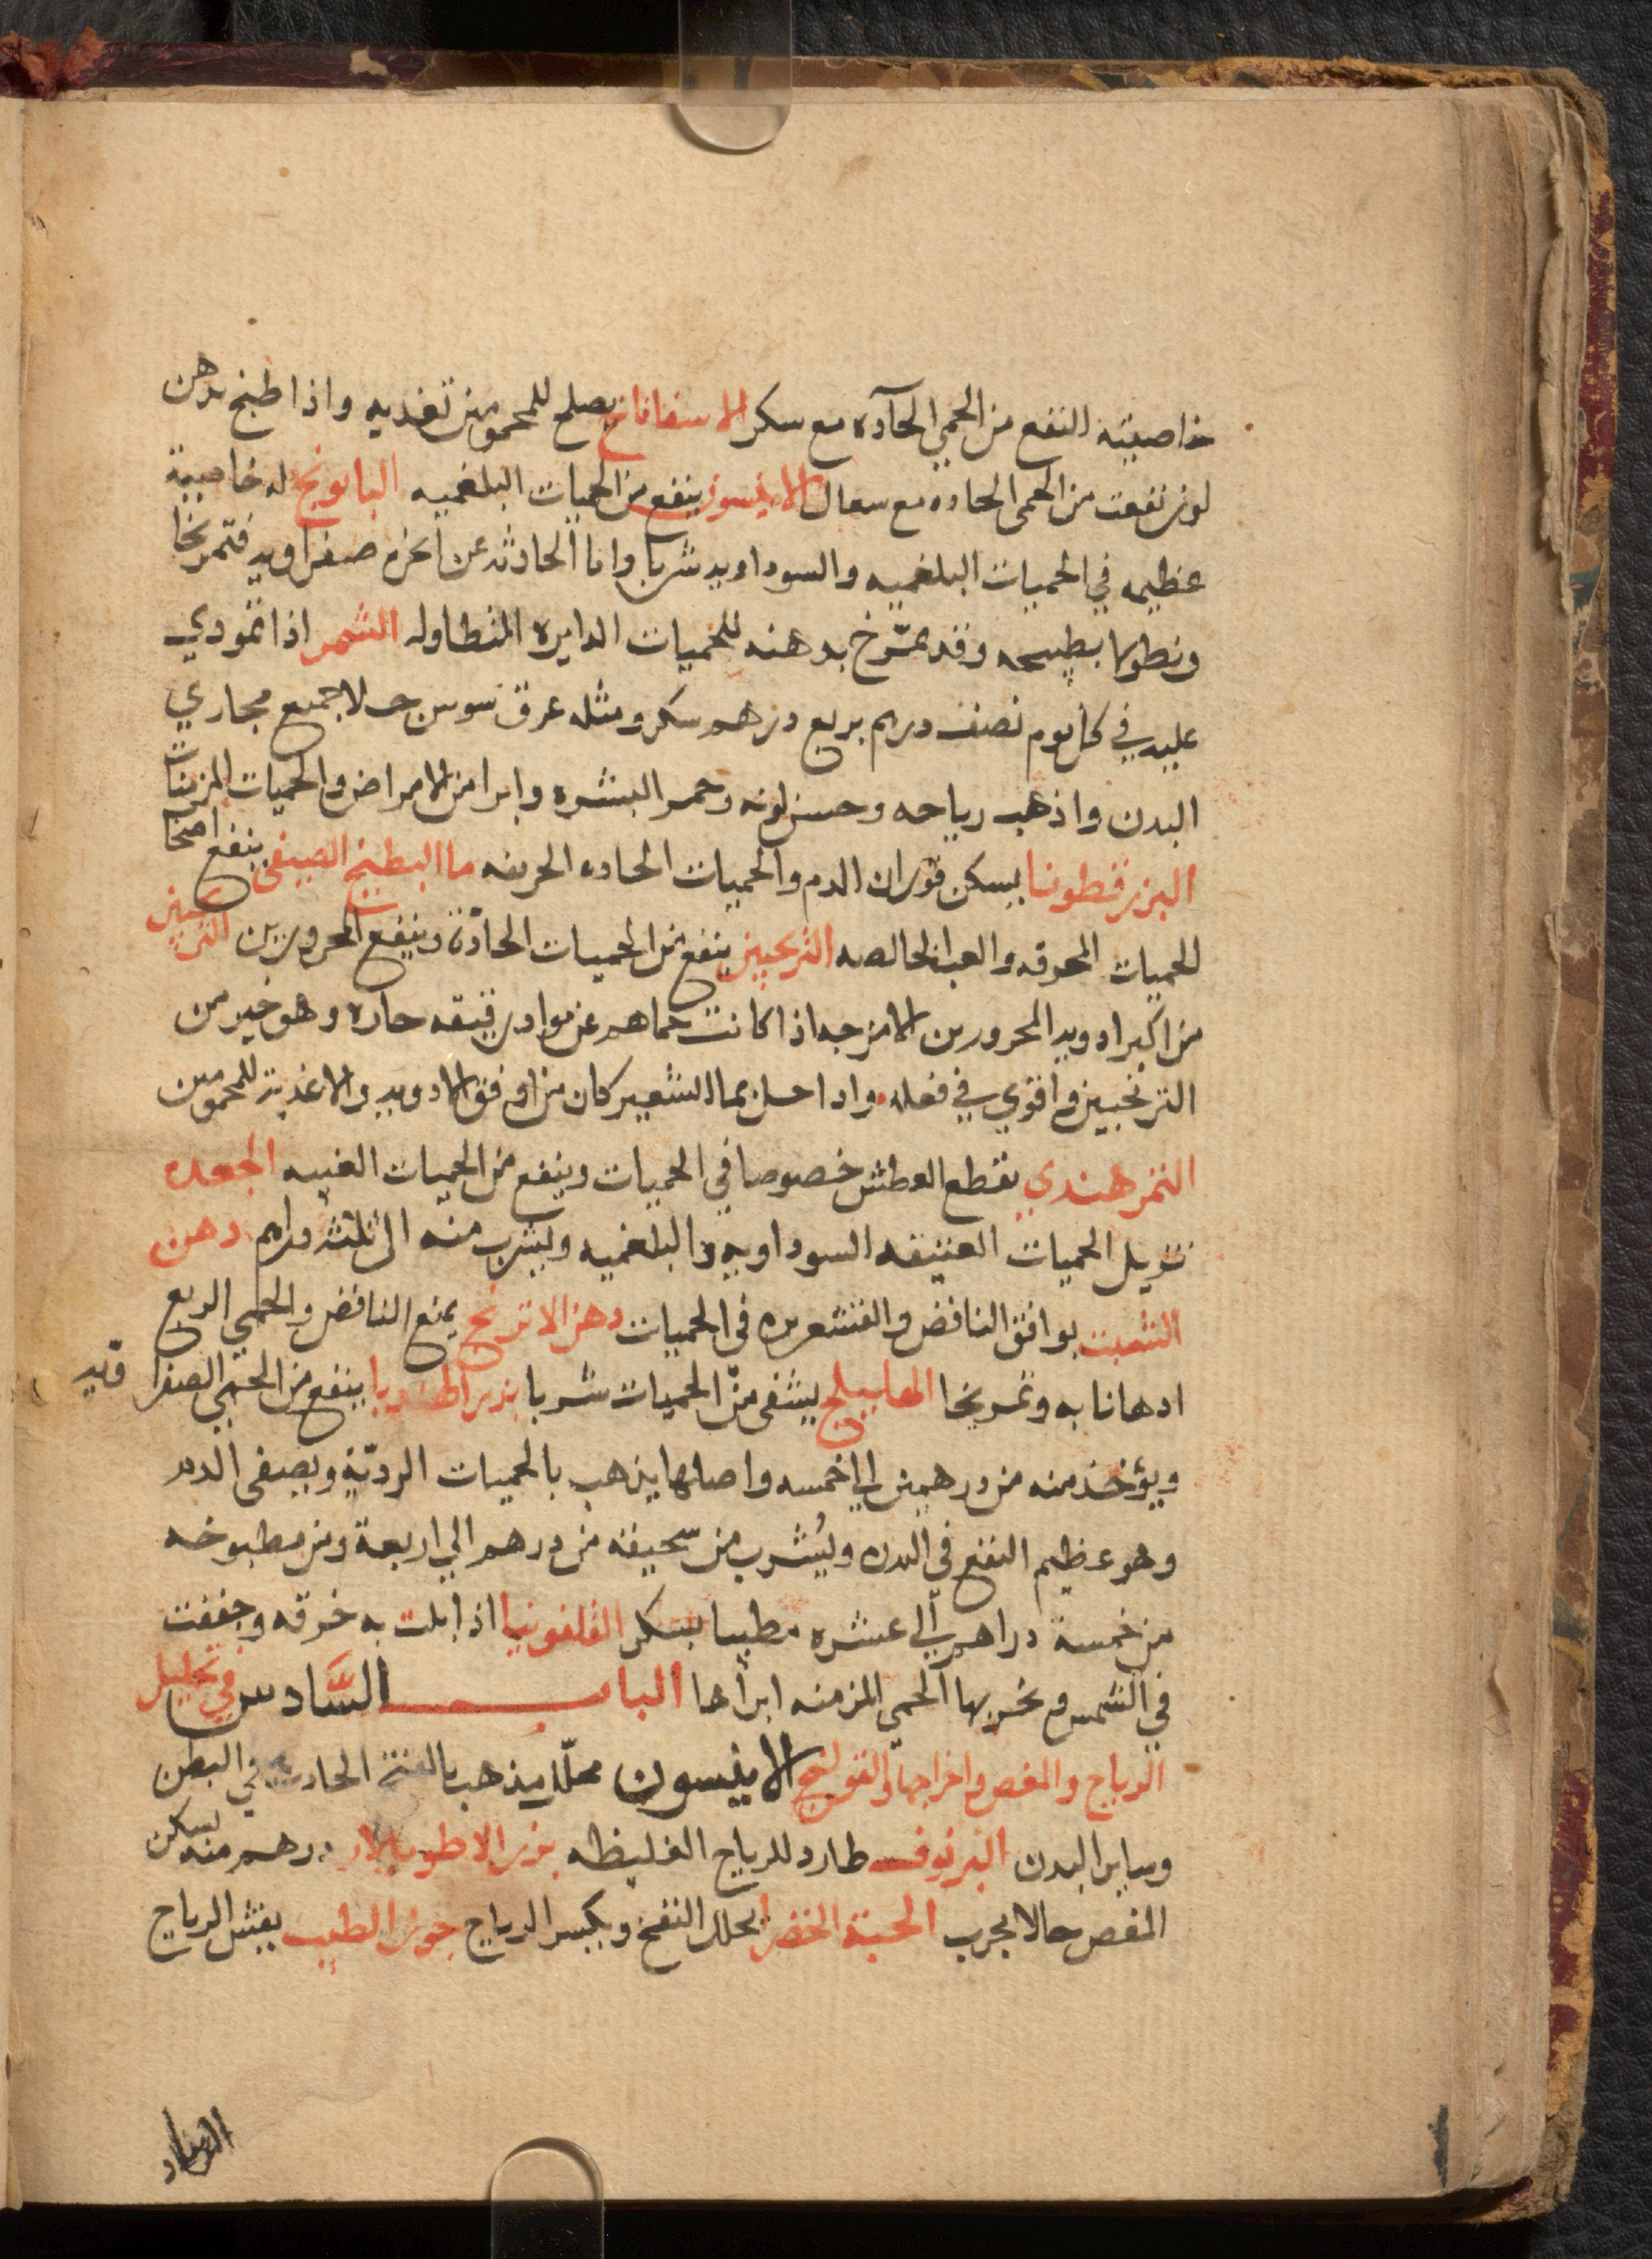 خاصيته النفع من الحمي الحآده مع سكر الاسفاناخ يصلح للمحمومين تغديه واذا طبخ بدهن
لوز نفعت من الحمى الحاده مع سعال الانيسون ينفع من الحميات البلغميه البابونج له خاصيية
عظيمه في الحميات البلغميه والسوداويه شربا واما الحادثه عن ابخره صفراويه فتمريخا
ونطولا بطبيخه وقد يمرّخ بدهنه للحميات الدايره المتطاوله الشمر اذا تمودي
عليه في كل يوم نصف درهم بربع درهم سكر ومثله عرق سوس جلا جميع مجاري
البدن واذهب رياحه وحسن لونه وحمر البشره وابرا من الامراض والحميات المزمنات
البزرقطونا يسكن فوران الدم والحميات الحاده الحريفه ما البطيخ الصيفى ينفع اصحا
الحميات المحرقه والغب الخالصه الترنجبين ينفع من الحميات الحادّة وينفع المحرورين
من اكبر ادويه المحرورين الامزجه اذا كانت حماهم عن مواد رقيقه حاره وهو خير من
الترنجبين واقوي في فعله واذا حل بما الشعير كان من اوفق الادويه والاغذية للمحمومين
التمر هندي يقطع العطش خصوصا في الحميات وينفع من الحميات الغبيه الجعده
تزيل الحميات العتيقه السوداويه والبلغميه ويشرب منه الى ثلثة دراهم دهن
الشبت يوافق النافض والقشعريره فى الحميات دهن الاترنج يمنع النافض والحمي الربع
ادهانا به وتمريخا الهليلج يشفى من الحميات شربا بزر الهندبا ينفع من الحمي الصفرا ويه
ويؤخذ منه من درهمين الي خمسه واصلها يذهب بالحميات الرديّة ويصفى الدم
وهو عظيم النفع في البدن ويُشرب من سحيقه من درهم الي اربعة ومن مطبوخه
من خمسة دراهم الي عشره مطيبا بسكر القلفونيا اذا بلت به خرقه وجففت
في الشمس وبخر بها الحمي المزمنه ابرأها البـــاب السَّادس في تحليل
الرياح والمغص واخراجها والقولنج الانيسون محلل يذهب بالنفخ الحادث في البطن
وساير البدن البرنوف طارد للرياح الغليظه بزر درهم منه يسكن
المغص حالا مجرب الحبة الخضرا يحلل النفخ ويكسر الرياح جوز الطيب يفش الرياح